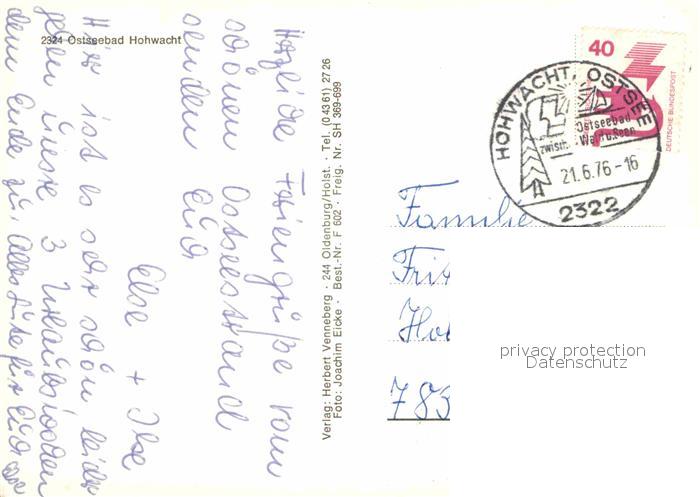 2324 Ostseebad Hohwacht
Herzliche Feriengrüße vom
schönen Ostseestrand
senden Euch
Else + Ilse
Hier ist es sehr schön leider
gehen unsre 3 Urlaubswochen
dem Ende zu. Alles Gute für Euch
Verlag: Herbert Venneberg · 244 Oldenburg/Holst. · Tel. (04361) 2726
Foto: Joachim Eicke · Best.-Nr. F 602 · Freig. Nr. SH 369-699
40
DEUTSCHE BUNDESPOST
HOHWACHT, OSTSEE
Ostseebad
zwisch. Wald u. Seen
21.6.76-16
2322
Familie
Fri
Ho
783
privacy protection
Datenschutz